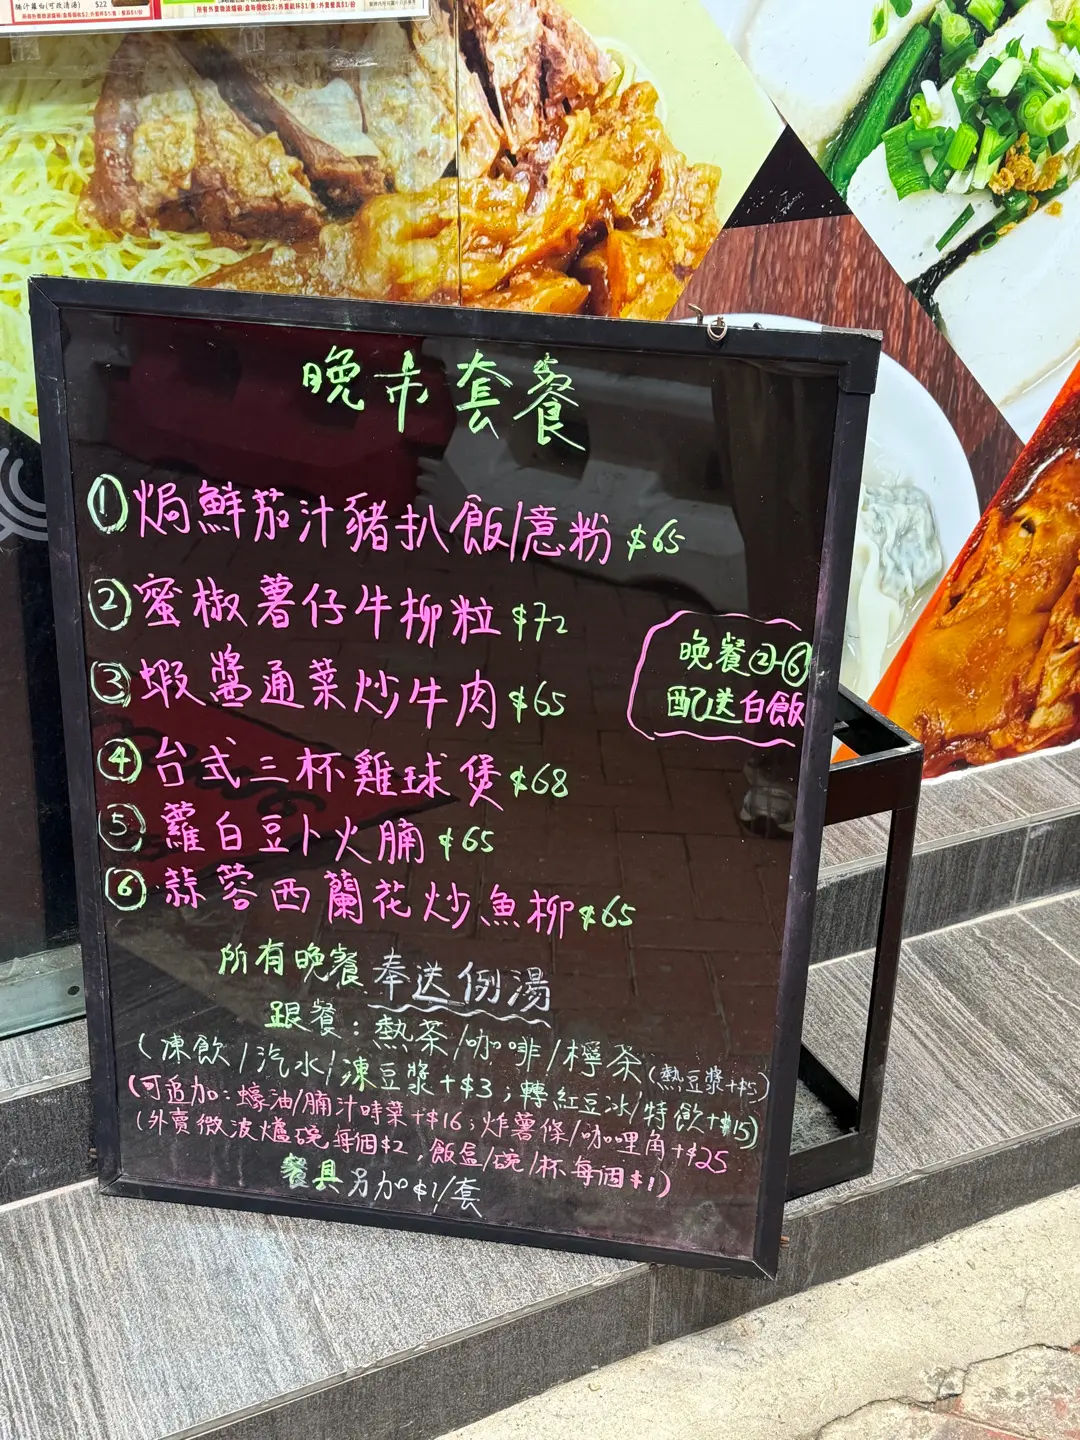 腩汁蘿蔔(可收清湯) $22
晚市套餐
① 焗鮮茄汁豬扒飯/意粉 $65
② 蜜椒薯仔牛柳粒 $72
③ 蝦醬通菜炒牛肉 $65
④ 台式三杯雞球煲 $68
⑤ 蘿白豆卜火腩 $65
⑥ 蒜蓉西蘭花炒魚柳 $65
晚餐②-⑥
配送白飯
所有晚餐奉送例湯
跟餐：熱茶/咖啡/檸茶(熱豆漿+$5)
(凍飲/汽水/凍豆漿+$3；轉紅豆冰/特飲+$15)
(可追加：蠔油/腩汁時菜+$16；炸薯條/咖哩角+$25
(外賣微波爐碗每個$2，飯盒/碗/杯每個$1)
餐具另加$1/套